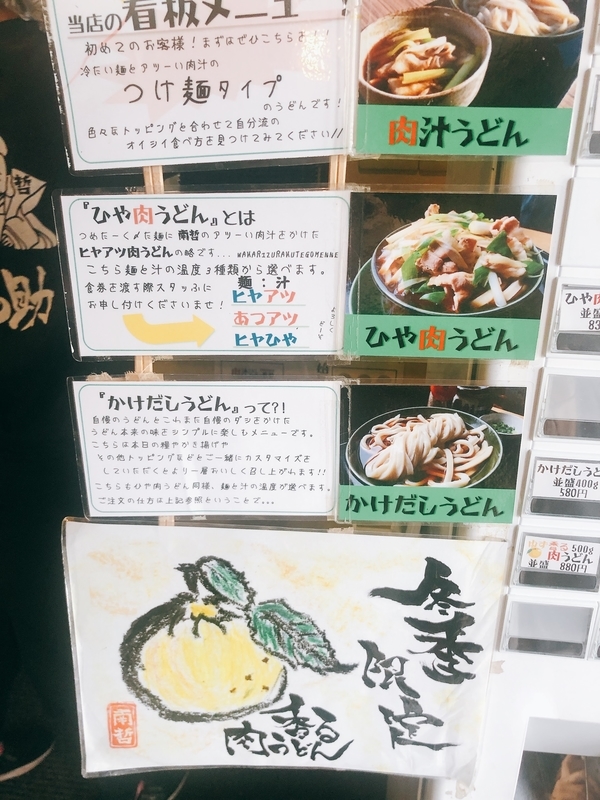 当店の看板メニュー!
初めてのお客様!まずはぜひこちらを!!
冷たい麺とアツーい肉汁の
つけ麺タイプ
のうどんです!
色々なトッピングと合わせて自分流の
オイシイ食べ方を見つけてみてください//
肉汁うどん
『ひや肉うどん』とは
つめたーく〆た麺に南哲のアツーい肉汁をかけた
ヒヤアツ肉うどんの略です... WAKARIZURAKUTEGOMENNE
こちら麺と汁の温度3種類から選べます。
食券を渡す際スタッふに
お申し付けくださいませ!
麺:汁
ヒヤアツ
あつアツ
ヒヤひや
ひや肉うどん
ひや肉
並盛
『かけだしうどん』って?!
自慢のうどんとこれまた自慢のダシをかけた
うどん本来の味をシンプルに楽しむメニューです。
こちらは本日の種やかき揚げや
その他トッピングなどとご一緒にカスタマイズを
していただくとより一層おいしく召し上がれます!!
こちらもひや肉うどん同様、麺と汁の温度が選べます。
ご注文の仕方は上記参照ということで...
かけだしうどん
かけだしうど
並盛400g
580円
500g
肉うどん
並盛 880円
冬季
限定
香る
肉うどん
南哲
助